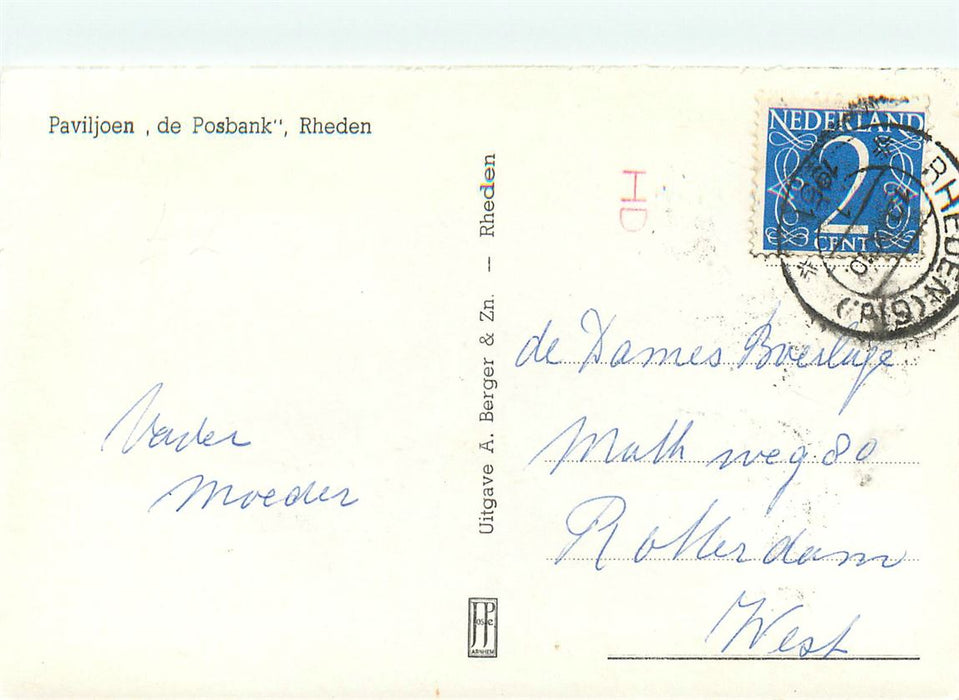 Paviljoen „de Posbank", Rheden
Vader
Moeder
Uitgave A. Berger & Zn. — Rheden
JosPe
ARNHEM
HD
NEDERLAND
2
CENT
RHEDEN (GLD.)
de Dames
Math weg 80
Rotterdam
West